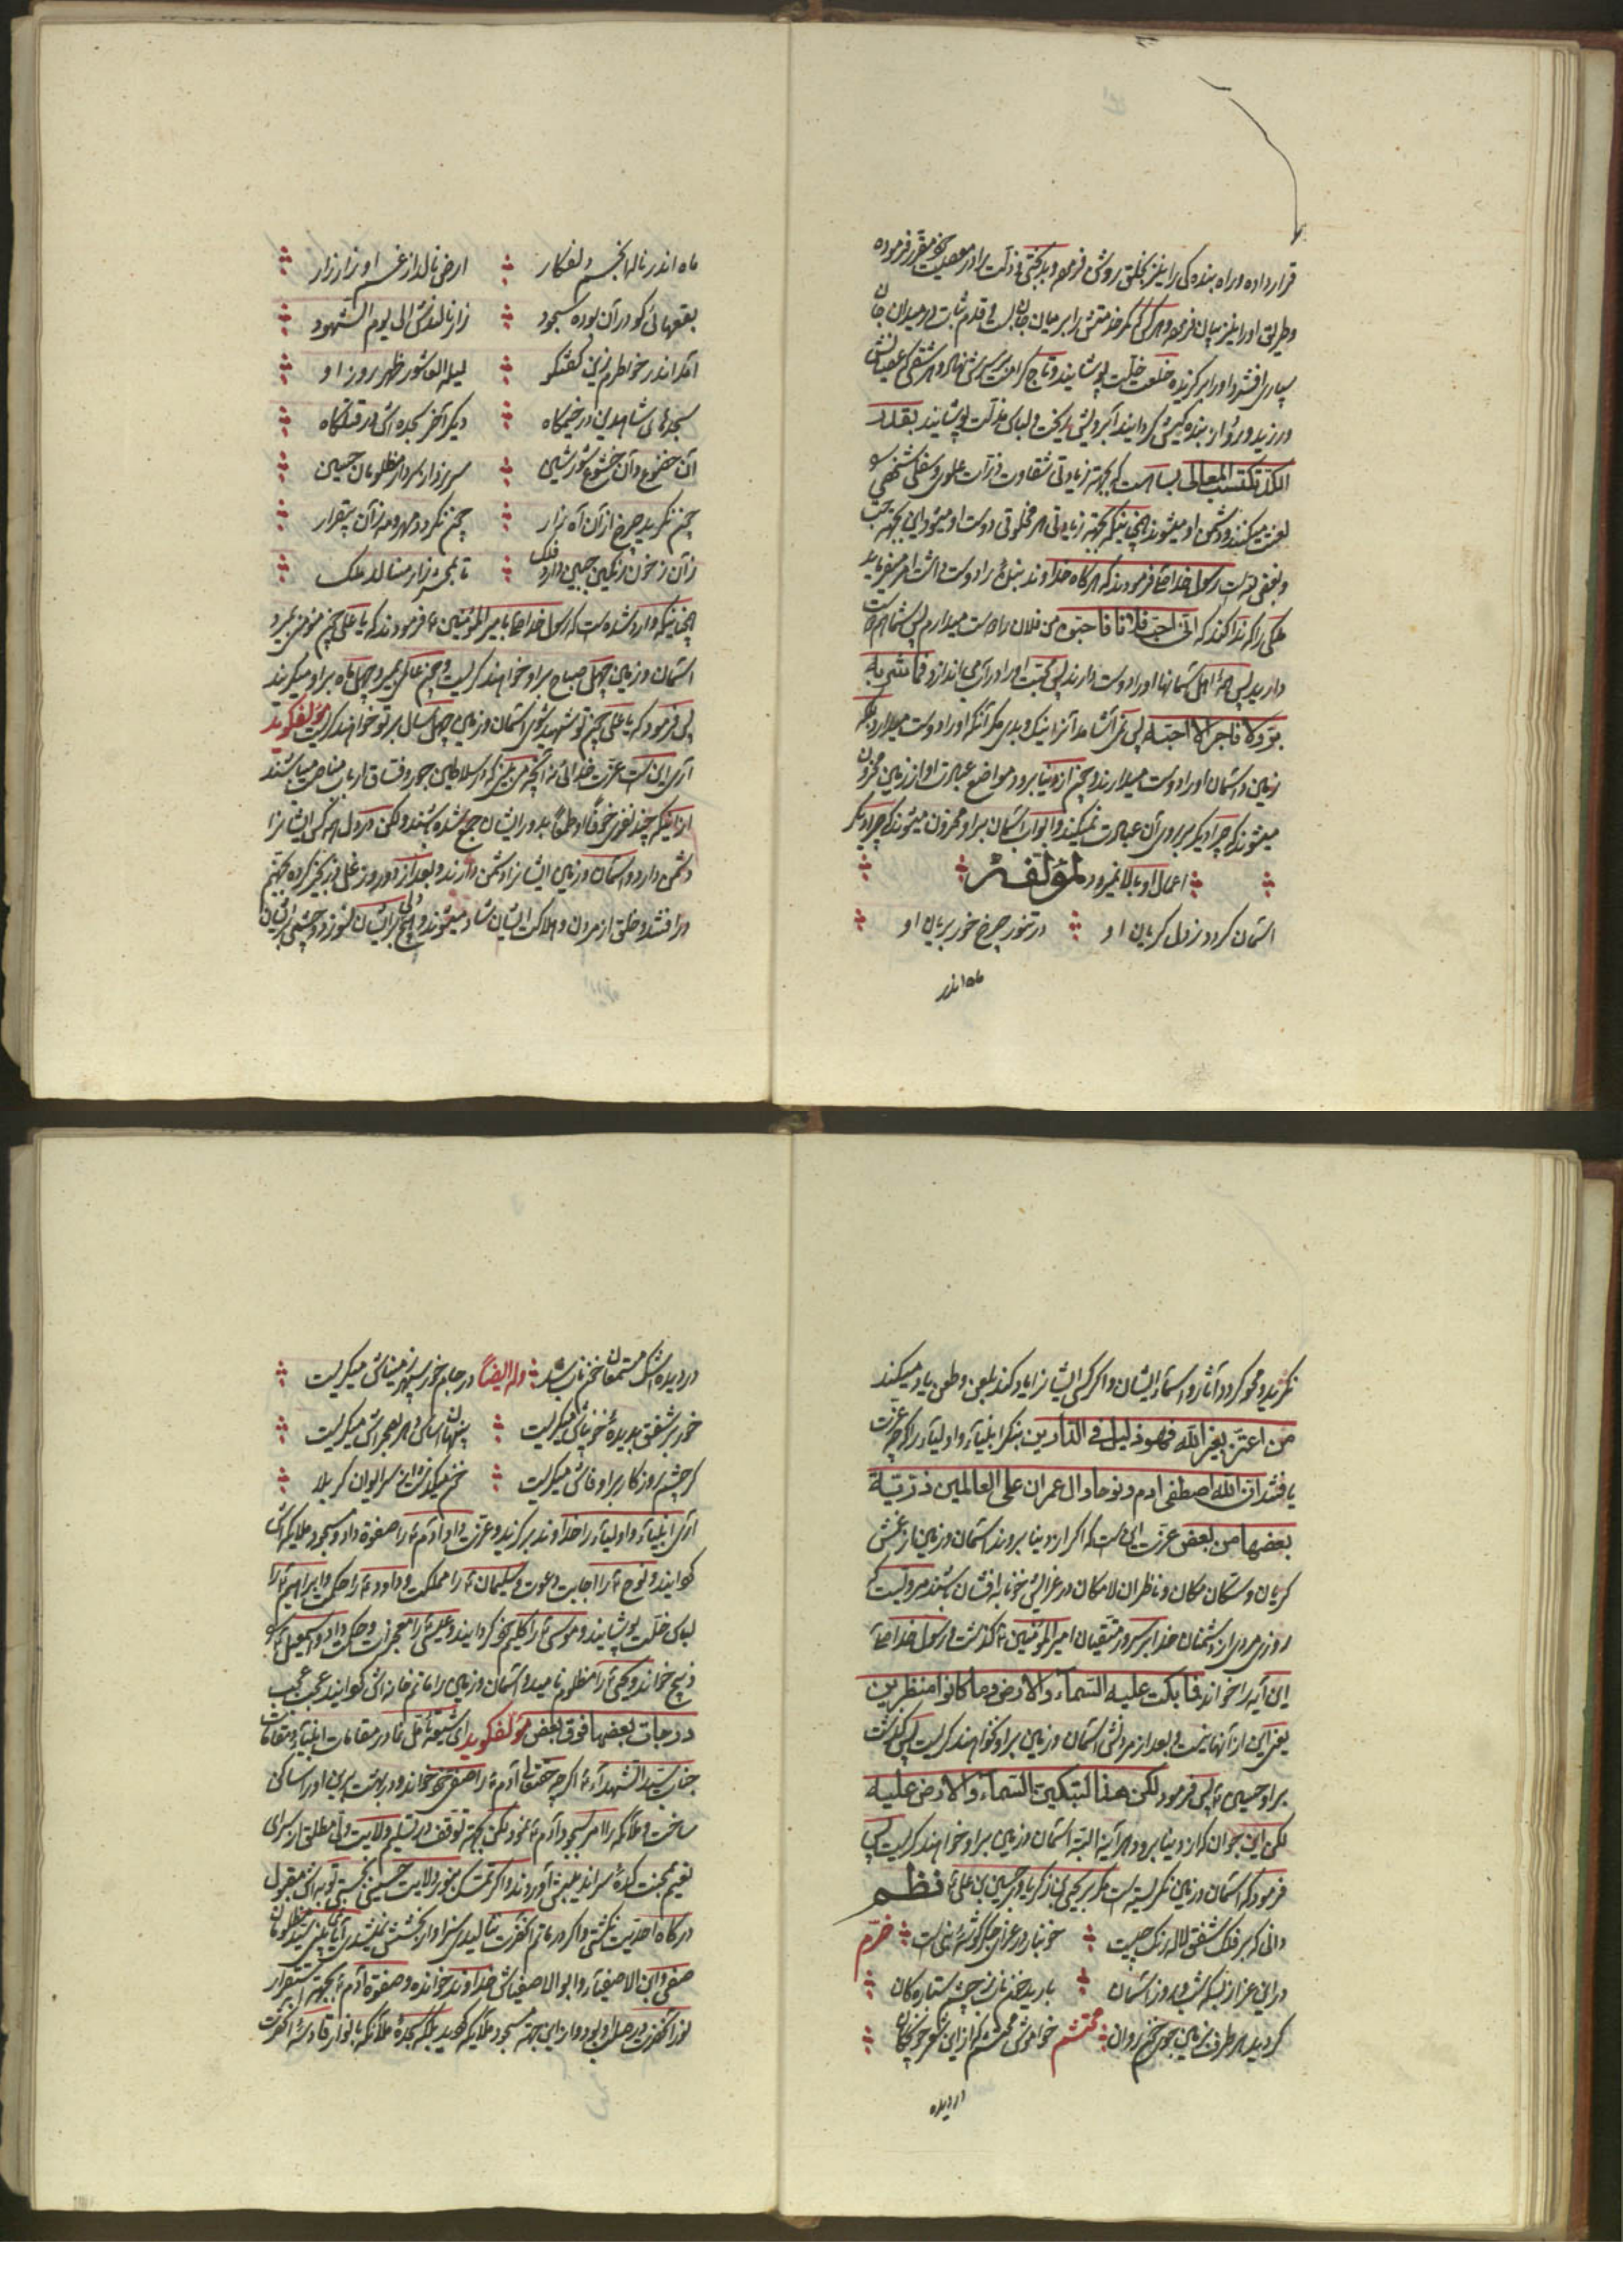 قرار داده و راه بندگی را نیز بخلق روشن فرموده و بدبختی و ذلت را در معصیت خود مقرر فرموده
و طریق او را نیز بیان فرموده و هر کس کمر خدمتش را بر میان جان بست و قدم ثبات در میدان جان
سپاری افشرد او را برگزیده خلعت خلّت پوشانید و تاج کرامت بر سرش نهاد و هر شقی که عصیانش
ورزید و رو از بندگیش گردانید آبرویش ریخت و لباس مذلت پوشانید بقدر
الکد تکتسب المعالی بسا هست که بجهة زیادتی شقاوت ذرات علوی و سفلی شخصی
لعنت میکنند و دشمن او میشوند چنانچه بجهة زیادتی هر مخلوقی دوست او میشود این بجهة حب
و بغض اوست رسول خدا ص فرمودند که هر گاه خداوند بنده را دوست داشت امر میفرماید
ملکی را که ندا کند که انی احب فلانا فاحبوه من فلان را دوست میدارم پس شما هم دوست
دارید پس همه اهل آسمانها او را دوست دارند پس محبت او را در آب می اندازد فما یشربه
برّ ولا فاجر الا احبه پس نمی آشامد آنرا نیک و بدی مگر آنکه او را دوست میدارد بلکه
زمین و آسمان او را دوست میدارند و چون از دنیا برود مواضع عبادت او از زمین محزون
میشوند که چرا دیگر بر روی آن عبادت نمیکند و ابواب آسمان بر او محزون میشوند که چرا دیگر
اعمال او بالا نمیرود لمؤلفه
آسمان گردد ز دل گریان او در تنور چرخ خور بریان او
ماه اندر
ماه اندر ناله انجم دلفکار ارض نالد از غم او زار زار
بقعهائی کو در آن بوده سجود زار نالندش الی یوم الشهود
آمد اندر خاطرم زین گفتگو لیلة العاشور ظهر روز او
سجدهای شاهدین در خیمگاه دیگر آخر سجده اش در قتلگاه
آن خضوع و آن خشوع و شور شین سر ز دار سردار مظلومان حسین
چون نگرید چرخ از آن آه نزار چون نگردد مهر و مه زان بیقرار
زان ز خون رنگین جبین دارد فلک تا بمحشر زار مینالد ملک
چنانچه وارد شده است که رسول خدا ص بامیر المؤمنین ع فرمودند که یا علی چون مؤمن بمیرد
آسمان و زمین چهل صباح بر او خواهند گریست و چون عالمی بمیرد چهل ماه بر او میگریند
پس فرمود که یا علی چون تو شهید شوی آسمان و زمین چهل سال بر تو خواهند گریست مؤلف گوید
آری این است عزت خدائی نه آنچه من و نیز که سلاطین جور و فساق ارباب مناصب میباشند
از اینکه چند نفری خوفاً او طمعاً بدور ایشان جمع شده باشند ولکن در دل همه کس ایشانرا
دشمن دارد و آسمان و زمین ایشانرا دشمن دارند و بعد از دو روز غل و زنجیر کرده بجهنم
در افتند و خلق از مردن و هلاکت ایشان شاد میشوند و هیچ دلی بر ایشان نسوزد و چشمی بر ایشان
نگرید و محو گردد آثار و اسماء ایشان و اگر کسی ایشانرا یاد کند بلعن و طعن یاد میکند
من اعتز بغیر الله فهو ذلیل فی الدارین بنگر انبیاء و اولیاء را که چه عزت
یافتند ان الله اصطفی ادم و نوحا و ال عمران علی العالمین ذریة
بعضها من بعض عزت این است که اگر از دنیا بروند آسمان و زمین از غمش
گریان و ساکنان مکان و ناظران لامکان در عزایش خونابه افشان باشند مرویست که
روزی مردی از دشمنان خدا بر سرور متقیان امیر المؤمنین ع گذشت و رسول خدا ص
این آیه را خواند فما بکت علیه السماء والارض وما کانوا منظرین
یعنی این از آنها نیست و بعد از مردنش آسمان و زمین بر او نخواهند گریست پس گذشت
بر او حسین ع پس فرمود لکن هذا لتبکین السماء والارض علیه
لکن این جوان که از دنیا برود هر آینه البته آسمان و زمین بر او خواهند گریست پس
فرمود که آسمان و زمین نگریسته است مگر بر یحیی بن زکریا و حسین بن علی ع نظم
دانی که بر فلک شفق لاله رنگ چیست خونبار در عزای جگر گوشه نبی است خرّم
در این عزا ز بسکه شب و روز آسمان بارید خون ناب ز چشم ستارگان
گردید هر طرف بزمین جوی خون روان محتشم خواموش محتشم که از این شعر خونچکان
در دیده
در دیده اشک مستمعان خون ناب شد وله ایضاً در جام خور سپهر ز مینائی میگریست
خور بر شفق بدیده خونپاش میگریست پنهان اساس دهر بصحراش میگریست
گر چشم روزگار بر او فاش میگریست خون میگذشت از سر ایوان کربلا
آری انبیاء و اولیاء را خداوند برگزید و عزت داد آدم ع را صفوة داد و مسجود ملایکه اش
گردانید و نوح ع را اجابت دعوت و سلیمان ع را مملکت و داود ع را حکمت و ابراهیم ع را
لباس خلّت پوشانید و موسی ع را کلیم خود گردانید و عیسی ع را معجزات و حکمت داد و اسمعیل ع را
ذبیح خواند و یحیی ع را مظلوم نامید و آسمان و زمین را ماتم خانه اش گردانید عجب عجب
درجات بعضها فوق بعض مؤلف گوید ای شیعه تأمل نما در مقامات انبیاء و مقامات
جناب سید الشهداء ع اگر چه حقتعالی آدم ع را صفی خود خواند و در بهشت برین او را ساکن
ساخت و ملائکه را امر بسجود آدم ع نمود لکن بجهة توقف در تسلیم ولایت ولی مطلق از سرای
نعیم بمحنت کده سراندیبش آوردند و اگر تمسک بنور ولایت حسین نجستی توبه اش مقبول
درگاه احدیت نگشتی و اگر در ماتم آنحضرت ننالیدی سزاوار بخشش نشدی آیا نه بینی سید مظلومان
صفی و ابن الاصفیاء و ابو الاصفیاش خداوند خوانده و صفوة آدم ع بجهة استقرار
نور آنحضرت در صلب او بود و از این جهة مسجود ملائکه گردید بلکه سجده ملائکه بانوار قادسه آنحضرت